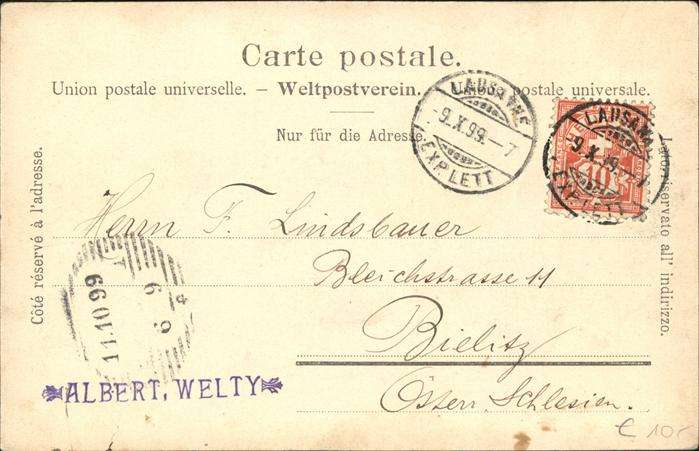 Carte postale.
Union postale universelle. – Weltpostverein. – Unione postale universale.
Nur für die Adresse.
Côté réservé à l'adresse.
Lato riservato all' indirizzo.
LAUSANNE
9.X.99.–7
EXP. LETT
LAUSANNE
9.X.99.–7
EXP. LETT
10
Herrn F. Lindsbauer
Bleichstrasse 11
Bielitz
Österr. Schlesien.
11.10 99
ALBERT, WELTY
€ 10.-